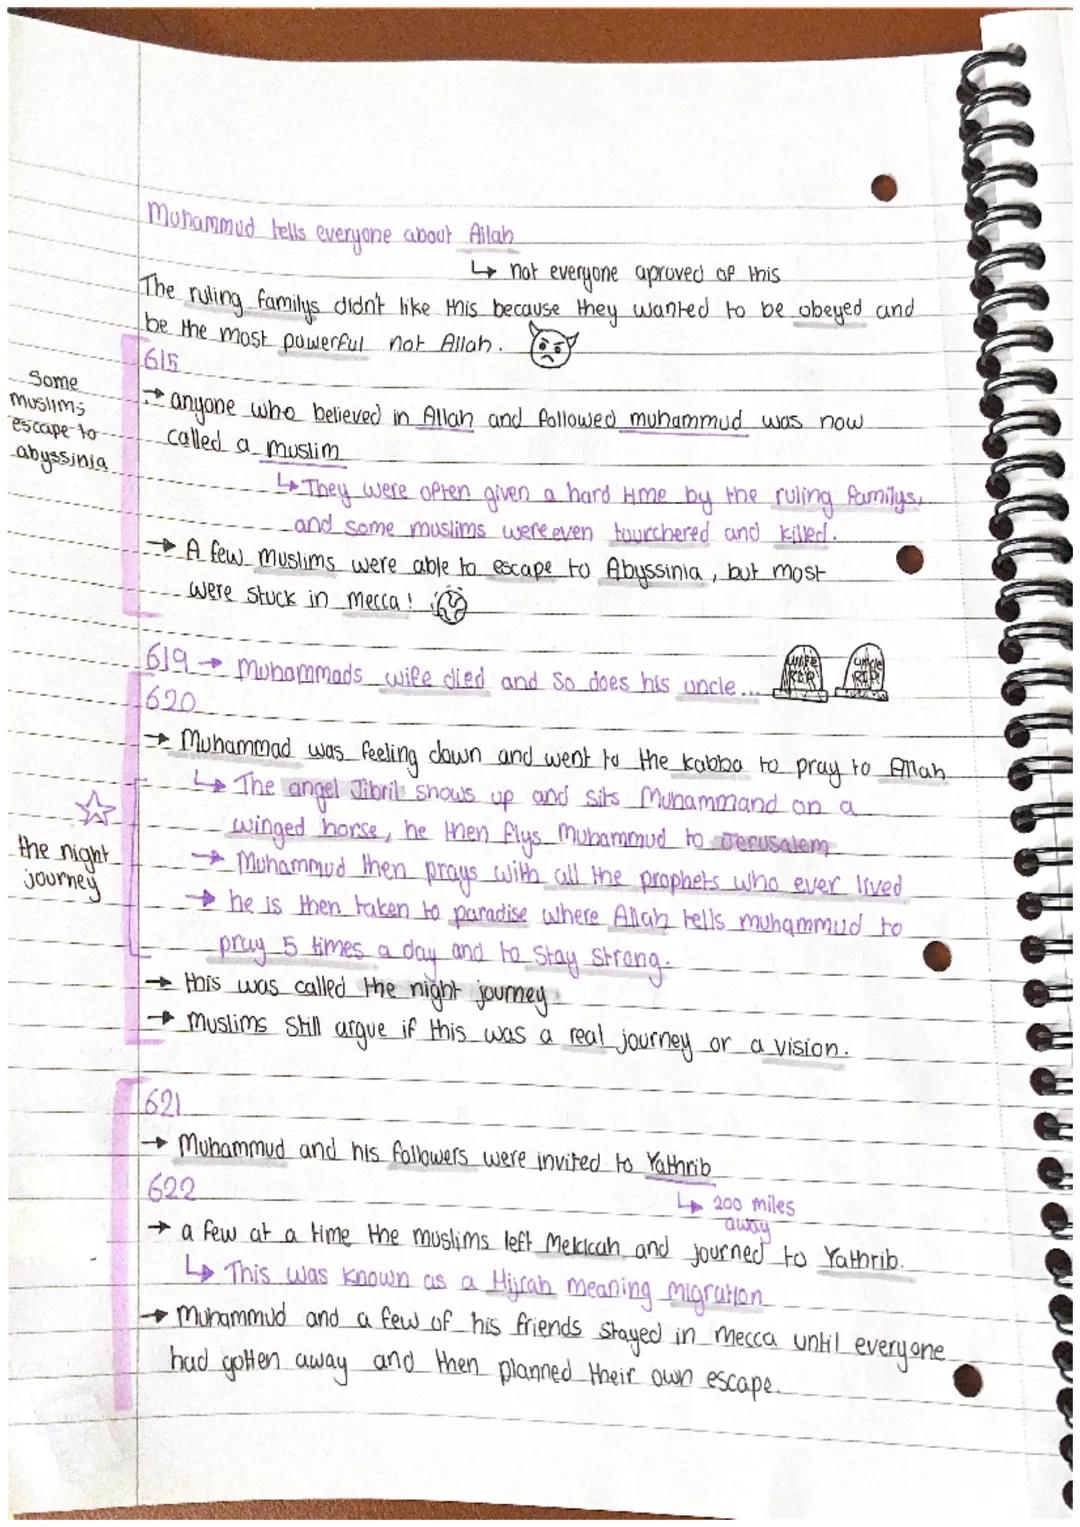 Muhammud tells everyone about Allah
↳ not everyone aproved of this
The ruling familys didn't like this because they wanted to be obeyed and
be the most powerful not Allah.
615
Some
muslims
escape to
abyssinia
→ anyone who believed in Allah and followed muhammud was now
called a muslim
↳ They were often given a hard time by the ruling familys,
and some muslims were even tourchered and killed.
→ A few muslims were able to escape to Abyssinia, but most
were stuck in mecca!
619 → Muhammads wife died and so does his uncle...
WIFE
RIP
uncle
RIP
620
→ Muhammad was feeling down and went to the kabba to pray to Allah
↳ The angel Jibril shows up and sits Muhammand on a
winged horse, he then flys Muhammud to Jerusalem
the night
journey
→ Muhammud then prays with all the prophets who ever lived
→ he is then taken to paradise where Allah tells muhammud to
pray 5 times a day and to stay strong.
→ this was called the night journey
→ muslims still argue if this was a real journey or a vision.
621
→ Muhammud and his followers were invited to Yathrib
↳ 200 miles
away
622
→ a few at a time the muslims left Mekkah and journed to Yathrib.
↳ This was known as a Hijrah meaning migration
→ Muhammud and a few of his friends stayed in mecca until everyone
had gotten away and then planned their own escape.